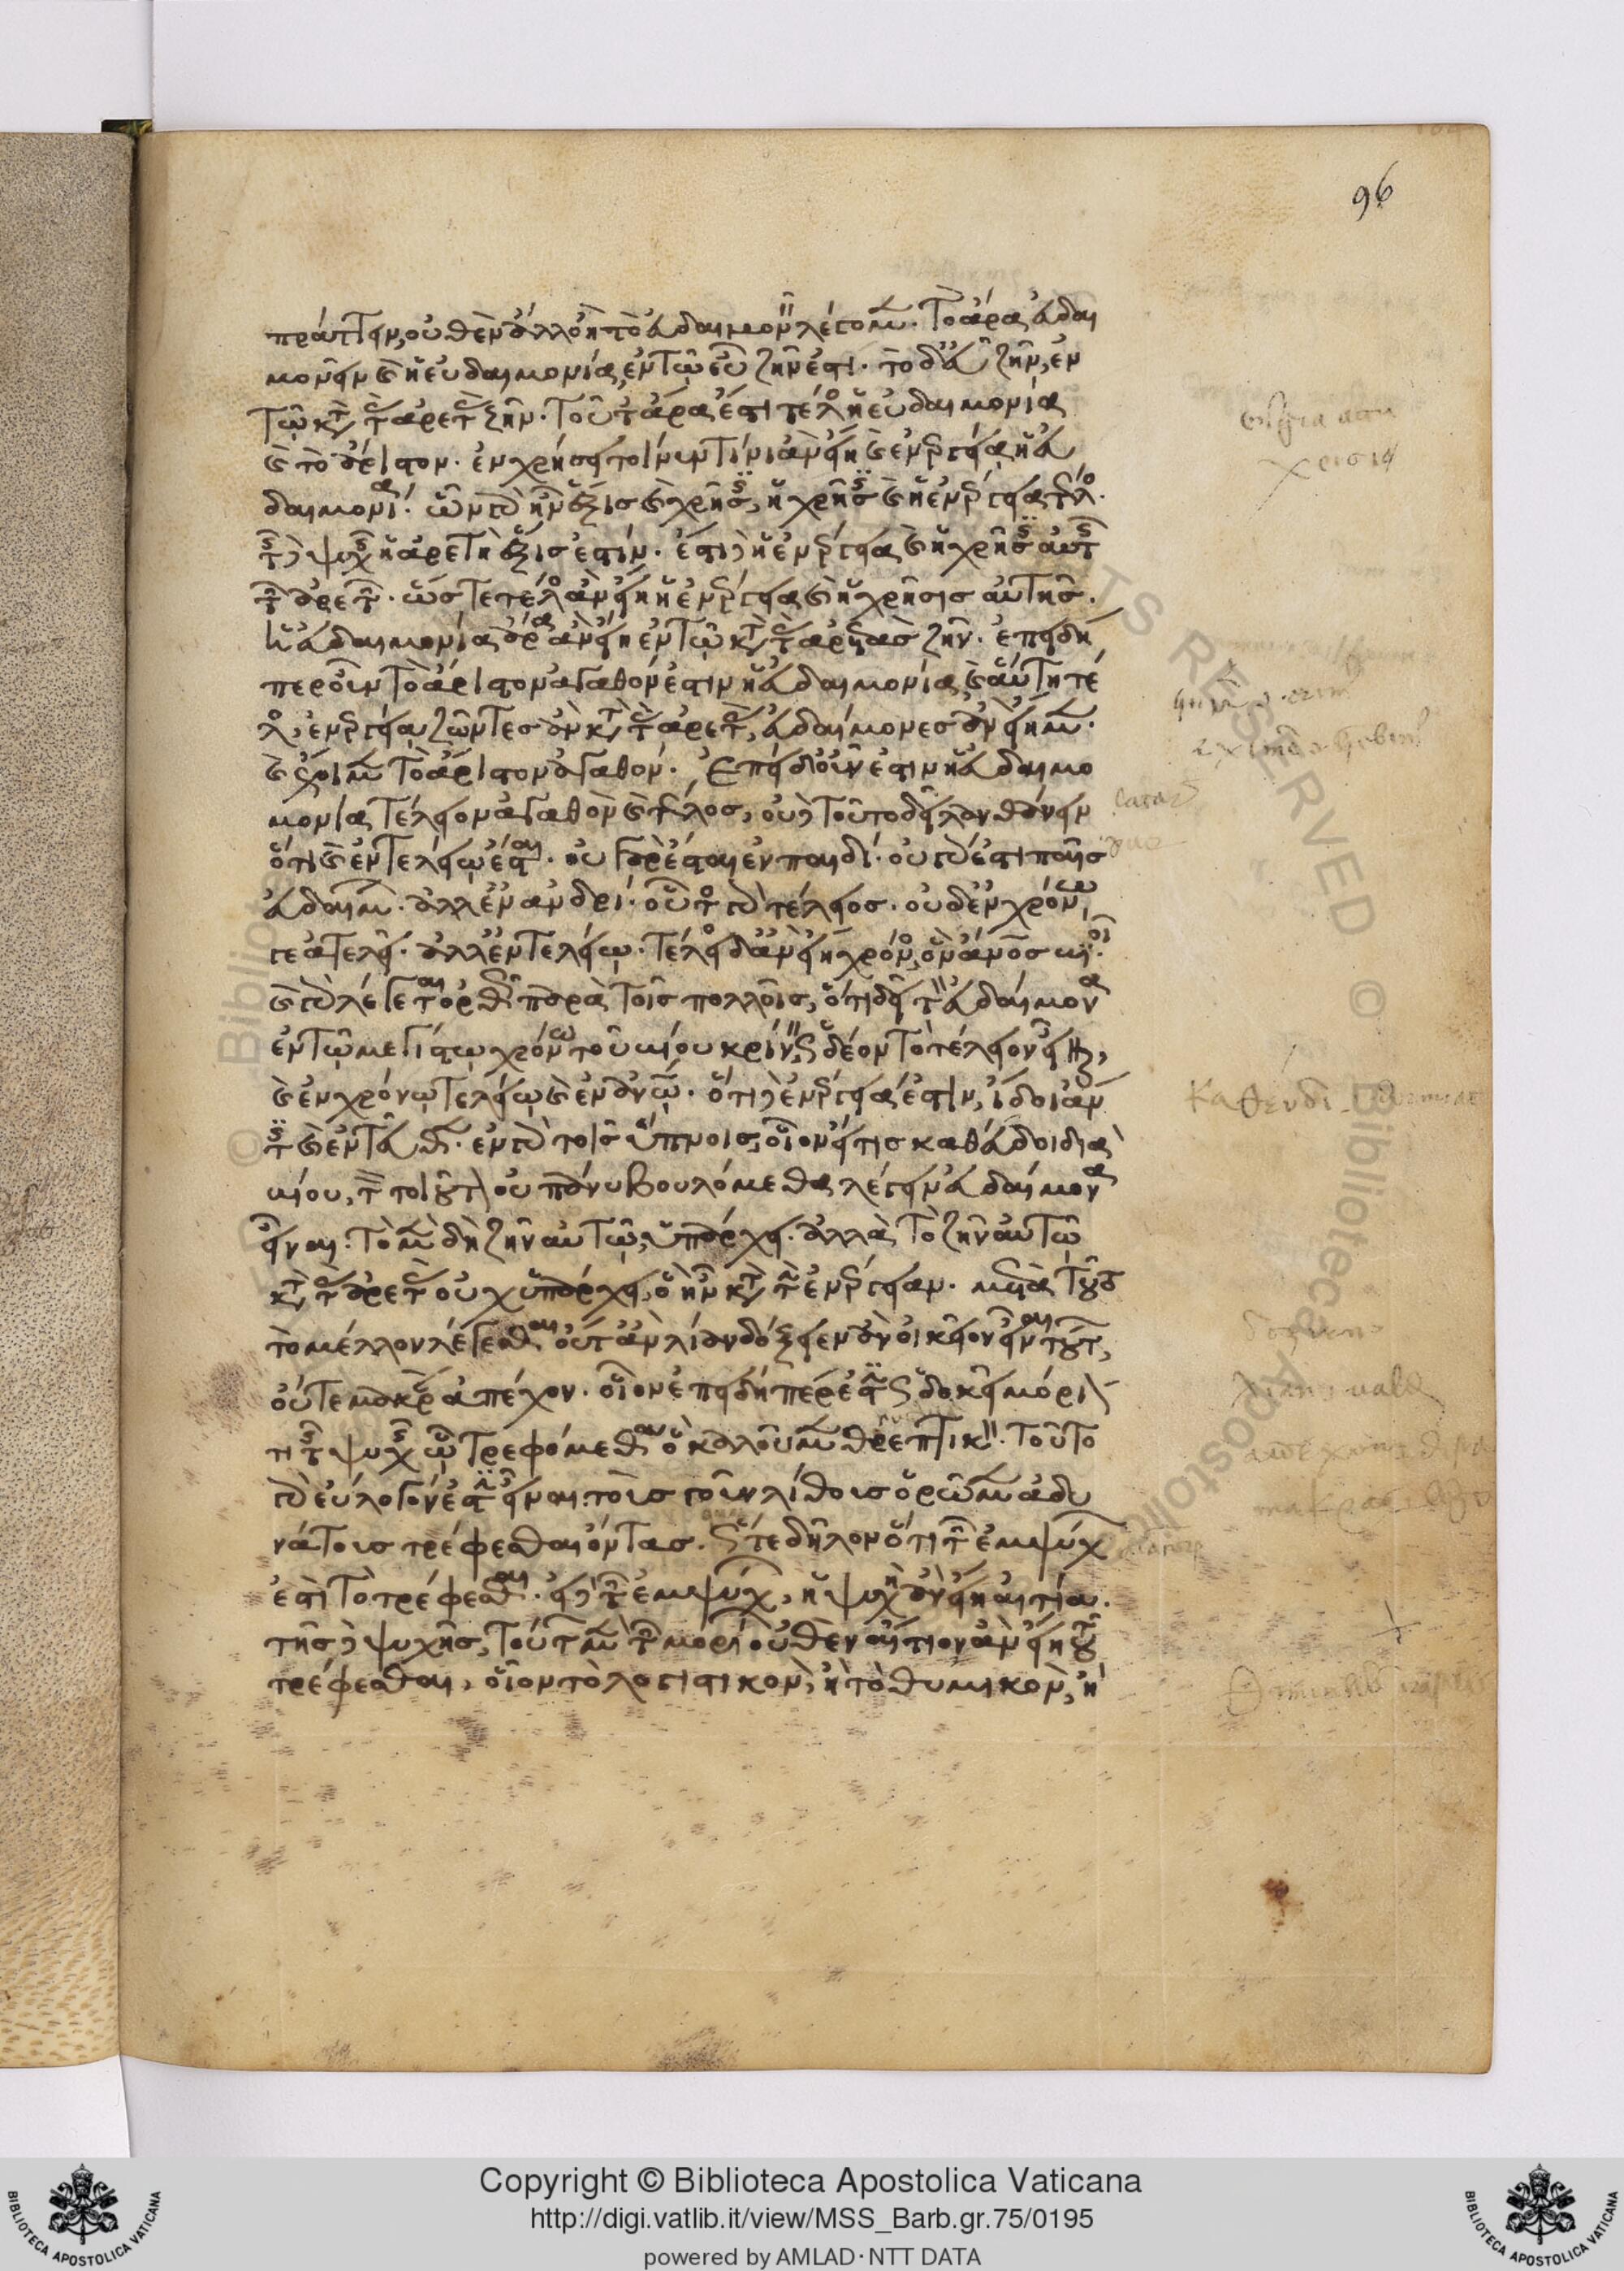 πράττειν, οὐθὲν ἄλλο ἢ τὸ εὐδαιμονεῖν λέγομεν. τὸ ἄρα εὐδαι
μονεῖν καὶ ἡ εὐδαιμονία, ἐν τῷ εὖ ζῆν ἐστι. τὸ δ' εὖ ζῆν, ἐν
τῷ κατὰ τὰς ἀρετὰς ζῆν. τοῦτ' ἄρα ἐστὶ τέλος ἡ εὐδαιμονία
καὶ τὸ ἄριστον. ἐν χρήσει τοίνυν τινὶ ἂν εἴη καὶ ἐνεργείᾳ ἡ εὐ
δαιμονία. ὧν γὰρ ἦν ἕξις καὶ χρῆσις, ἡ χρῆσις καὶ ἡ ἐνέργεια τέλος.
τῆς δὲ ψυχῆς ἡ ἀρετὴ ἕξις ἐστίν. ἔστι δὲ ἡ ἐνέργεια καὶ ἡ χρῆσις αὐτῆς
τῶν ἀρετῶν. ὥστε τέλος ἂν εἴη ἡ ἐνέργεια καὶ ἡ χρῆσις αὐτῆς.
ἡ εὐδαιμονία ἄρα ἂν εἴη ἐν τῷ κατὰ τὰς ἀρετὰς ζῆν. ἐπειδή
περ οὖν τὸ ἄριστον ἀγαθόν ἐστιν ἡ εὐδαιμονία καὶ αὕτη τέ
λος ἐνεργείᾳ, ζῶντες ἂν κατὰ τὰς ἀρετάς, εὐδαίμονες ἂν εἴημεν.
καὶ ἔχοιμεν τὸ ἄριστον ἀγαθόν. Ἐπεὶ δ' οὖν ἐστιν ἡ εὐδαιμο
νονία τέλειον ἀγαθὸν καὶ τέλος, οὐδὲ τοῦτο δεῖ λανθάνειν
ὅτι καὶ ἐν τελείῳ ἔσται. οὐ γὰρ ἔσται ἐν παιδί. οὐ γάρ ἐστι παῖς
εὐδαίμων. ἀλλ' ἐν ἀνδρί. οὗτος γὰρ τέλειος. οὐδ' ἐν χρόνῳ
γε ἀτελεῖ. ἀλλ' ἐν τελείῳ. τέλειος δ' ἂν εἴη χρόνος, ὃν ἄνθρωπος βιοῖ.
καὶ γὰρ λέγεται ὀρθῶς παρὰ τοῖς πολλοῖς, ὅτι δεῖ τὸν εὐδαίμονα
ἐν τῷ μεγίστῳ χρόνῳ τοῦ βίου κρίνειν, ὡς δέον τὸ τέλειον εἶναι,
καὶ ἐν χρόνῳ τελείῳ καὶ ἐν ἀνθρώπῳ. ὅτι δὲ ἐνέργειά ἐστιν, ἴδοι ἄν
τις καὶ ἐντεῦθεν. ἐν γὰρ τοῖς ὕπνοις, οἷον εἴ τις καθεύδοι διὰ
βίου, τὸν τοιοῦτον οὐ πάνυ βουλόμεθα λέγειν εὐδαίμονα
εἶναι. τὸ μὲν δὴ ζῆν αὐτῷ ὑπάρχει. ἀλλὰ τὸ ζῆν αὐτῷ
κατὰ τὰς ἀρετὰς οὐχ ὑπάρχει, ὃ ἦν κατὰ τὴν ἐνέργειαν. μετὰ τοῦτο
τὸ μέλλον λέγεσθαι οὔτ' ἂν λίαν δόξειεν ἂν οἰκεῖον εἶναι τούτων,
οὔτε μακρὰν ἀπέχον. οἷον ἐπειδήπερ ἐστὶν ὡς δοκεῖ μόριόν
τι τῆς ψυχῆς ᾧ τρεφόμεθα, ὃ καλοῦμεν θρεπτικόν. τοῦτο
γὰρ εὔλογόν ἐστιν εἶναι. τοὺς γοῦν λίθους ὁρῶμεν ἀδυ
νάτους τρέφεσθαι ὄντας. ὥστε δῆλον ὅτι τῶν ἐμψύχων
ἐστὶ τὸ τρέφεσθαι. εἰ δὲ τῶν ἐμψύχων, ἡ ψυχὴ ἂν εἴη αἰτία.
τῆς δὲ ψυχῆς, τούτων μὲν τῶν μορίων οὐθὲν αἴτιον ἂν εἴη τοῦ
τρέφεσθαι, οἷον τὸ λογιστικόν, ἢ τὸ θυμικόν, ἢ
96
Copyright © Biblioteca Apostolica Vaticana
http://digi.vatlib.it/view/MSS_Barb.gr.75/0195
powered by AMLAD · NTT DATA
BIBLIOTECA APOSTOLICA VATICANA
BIBLIOTECA APOSTOLICA VATICANA